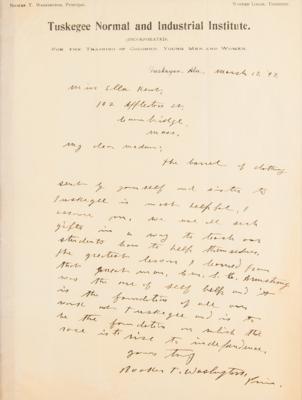 Booker T. Washington, Principal. Warren Logan, Treasurer.
Tuskegee Normal and Industrial Institute.
(INCORPORATED)
For the Training of Colored Young Men and Women.
Tuskegee, Ala., March 12, '97
Miss Ella
102 Appleton St,
Cambridge,
Mass.
My dear madam;
The barrel of clothing
sent by yourself and sister to
Tuskegee is most helpful, I
assure you. We use all such
gifts in a way to teach our
students how to help themselves.
The greatest lesson I learned from
that great man, Gen. S. C. Armstrong
was the one of self help and it
is the foundation of all our
work at Tuskegee and is to
be the foundation on which the
race is to rise to independence.
Yours truly
Booker T. Washington,
Prin.